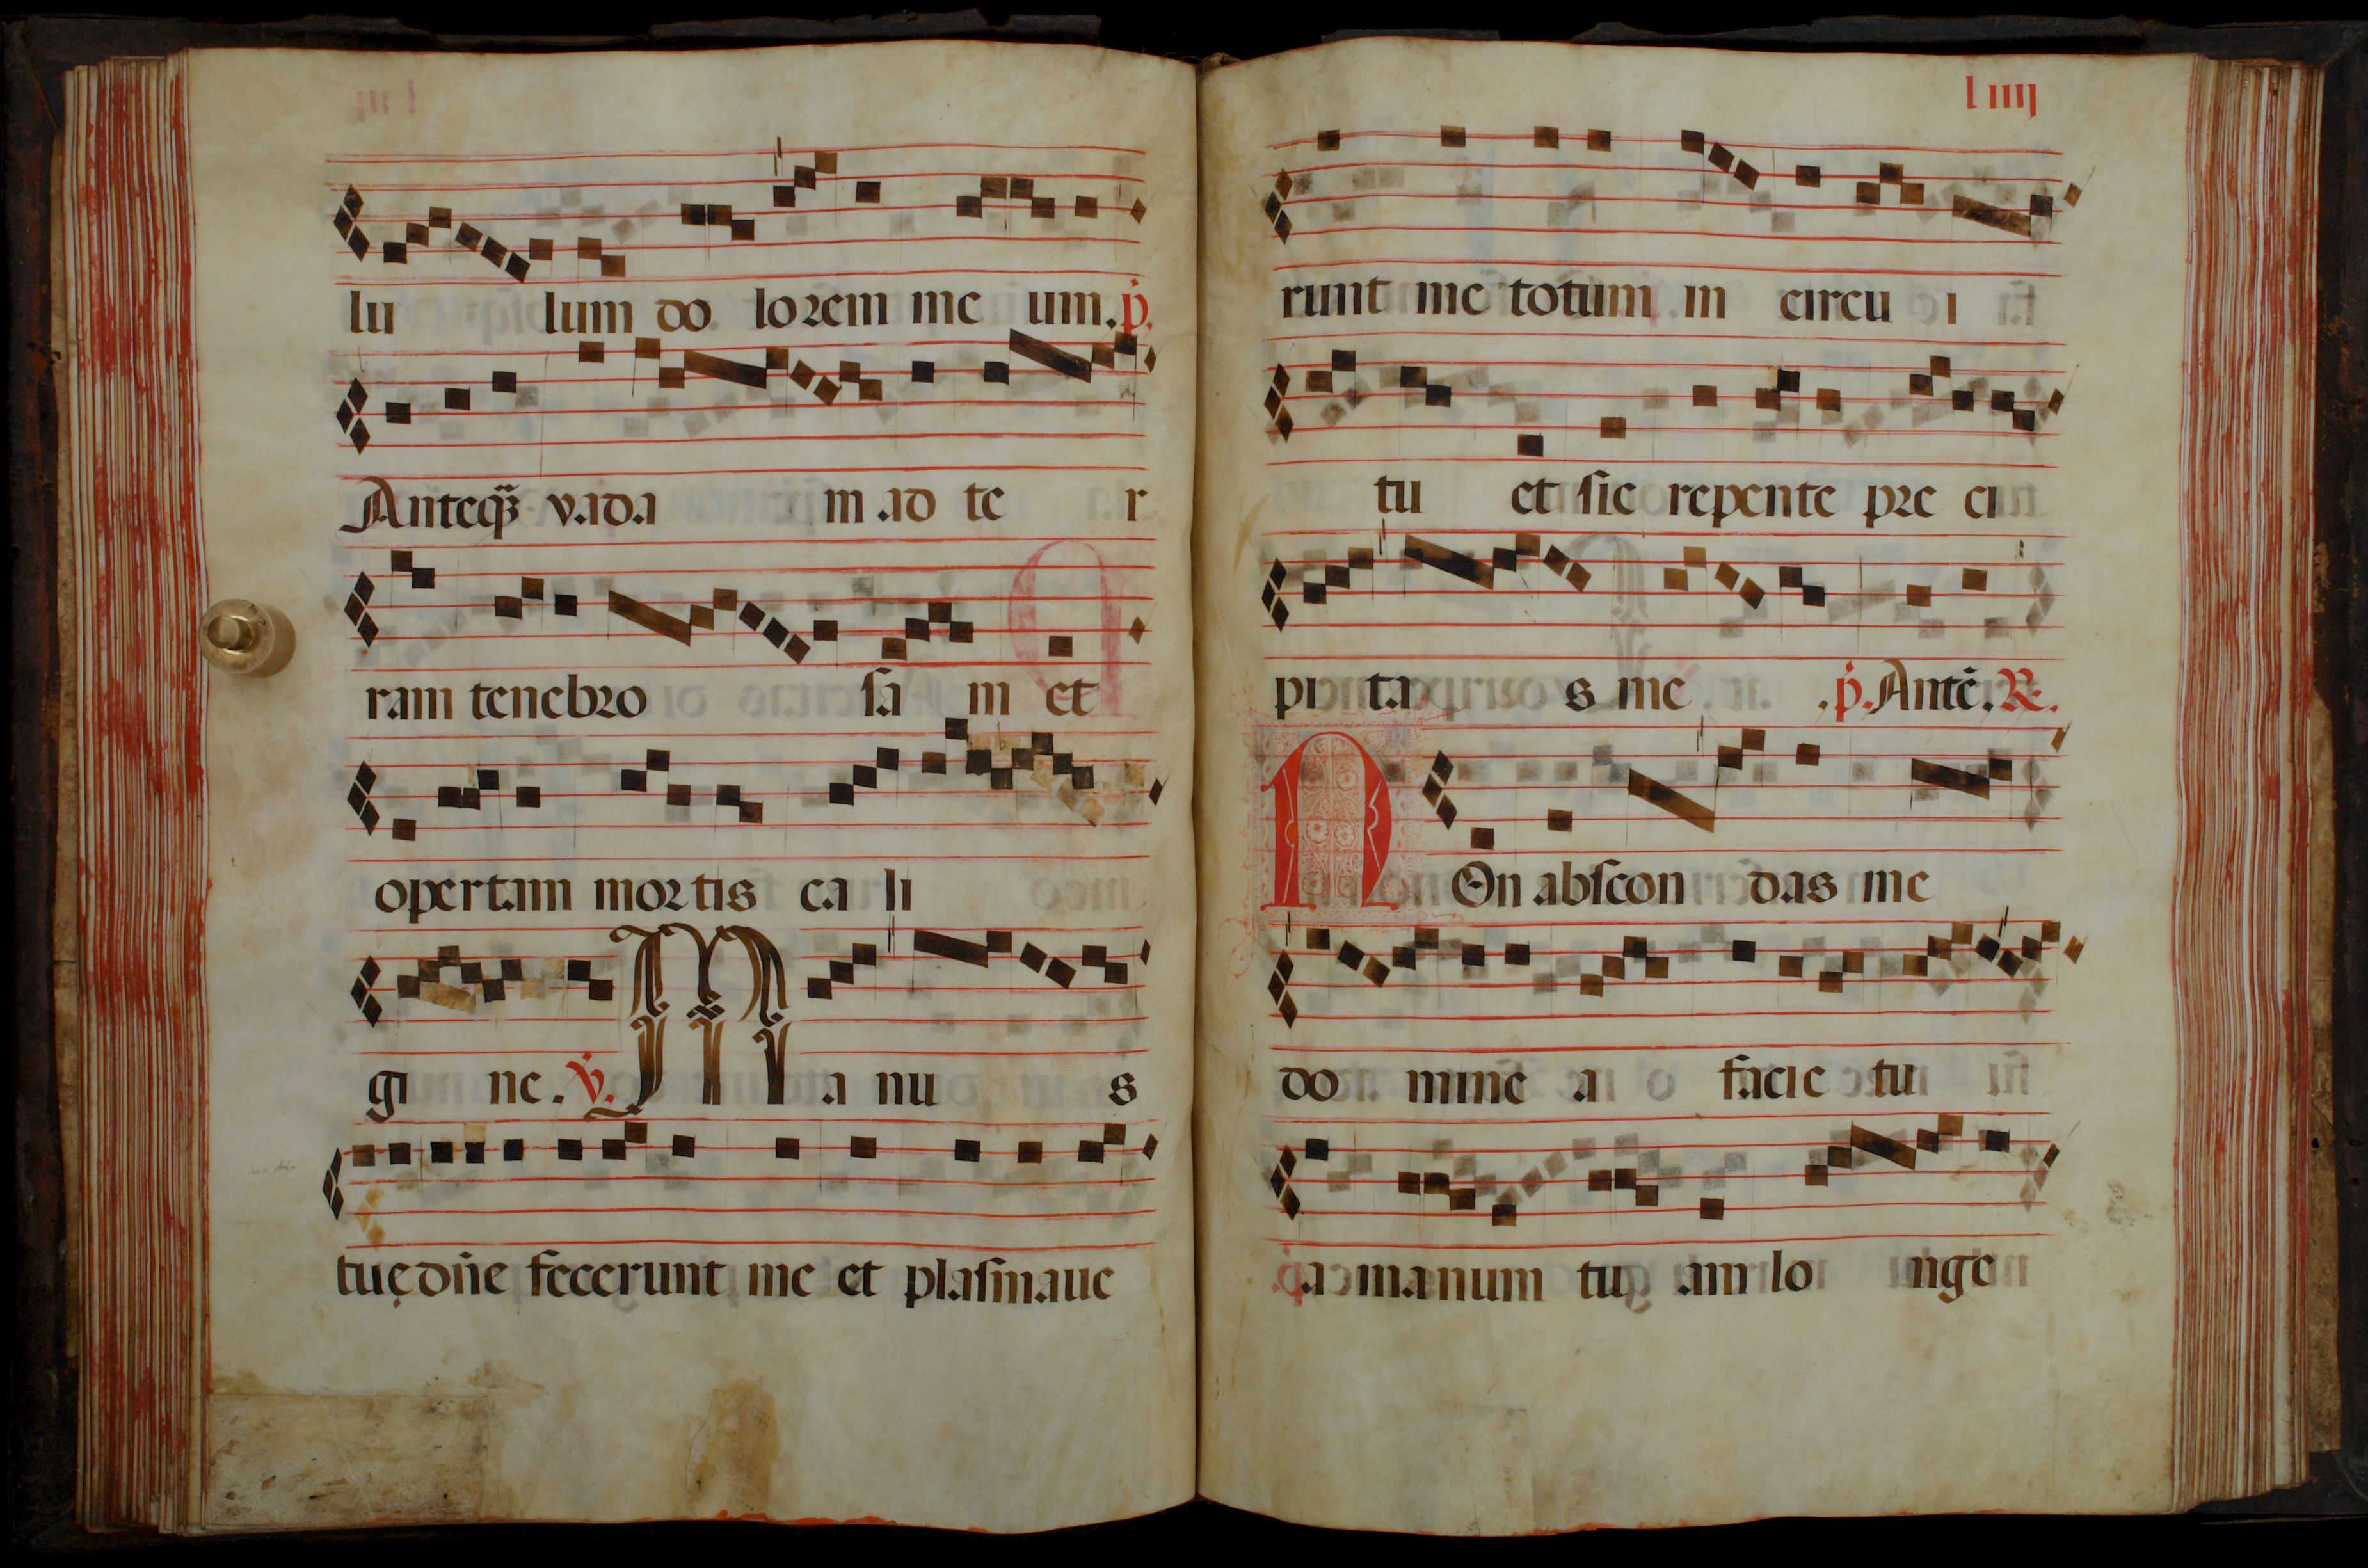 lu lum do lorem me um. p.
Anteq̃ vada m ad te r
ram tenebro sa m et
opertam mortis ca li
gi ne. v. Ma nu s
tuę dñe fecerunt me et plasmaue
l iiij
runt me totum in circu i
tu et sic repente pre ci
pi ta s me .p. Ante. R.
NOn abscon das me
do mine a facie tu
a manum tu am lo nge